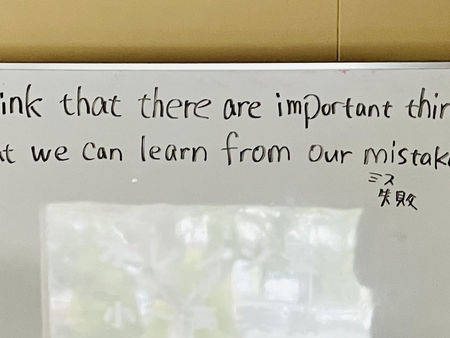 ink that there are important thin
at we can learn from our mistake
ミス
失敗